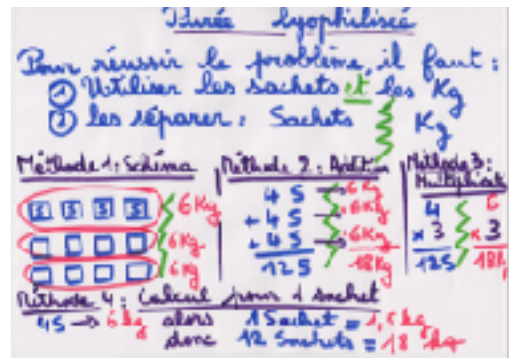 Purée lyophilisée
Pour réussir le problème, il faut :
① Utiliser les sachets et les Kg
② les séparer : Sachets Kg
Méthode 1 : Schéma
S S S S 6Kg
6Kg
6Kg
Méthode 2 : Addition
4 S → 6 Kg
+ 4 S → 6Kg
+ 4 S → 6Kg
12S 18Kg
Méthode 3 :
Multiplicat
4 6
x 3 x 3
12S 18k
Méthode 4 : Calcul pour 1 sachet
4S → 6 kg alors 1 Sachet = 1,5 kg
donc 12 Sachets = 18 kg